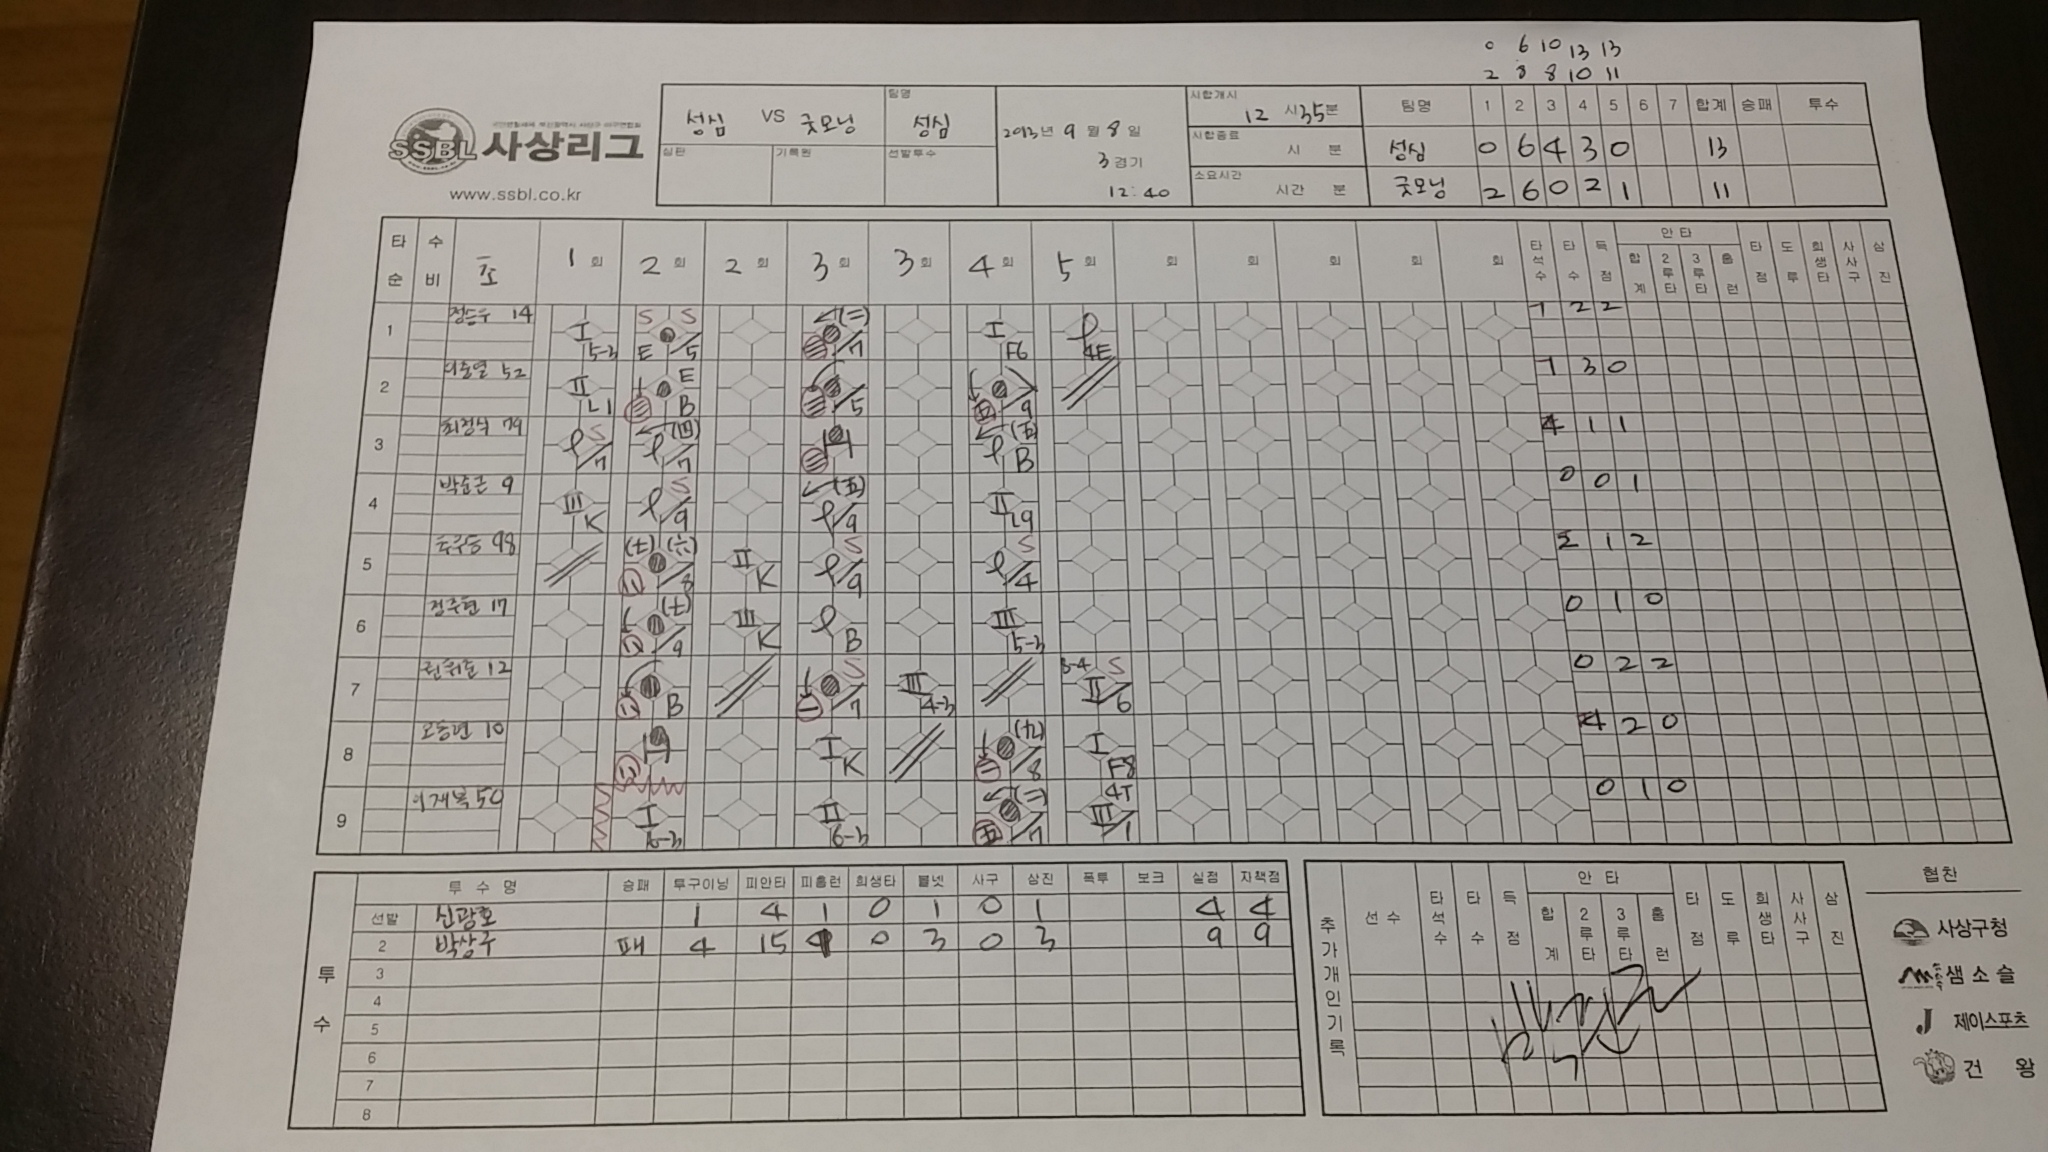 0 6 10 13 13
2 8 8 10 11
SSBL 사상리그
www.ssbl.co.kr
성심 VS 굿모닝
팀명
성심
심판
기록원
선발투수
2013년 9월 8일
3경기
12:40
시합개시
12시 35분
시합종료
시 분
소요시간
시간 분
팀명 1 2 3 4 5 6 7 합계 승패 투수
성심 0 6 4 3 0 13
굿모닝 2 6 0 2 1 11
타순 수비 초 1회 2회 2회 3회 3회 4회 5회 회 회 회 회 회 타석수 타수 득점 안타 합계 2루타 3루타 홈런 타점 도루 희생타 사사구 삼진
1 14 I 5-3 S S E /5 (二) /7 I F6 4E 1 2 2
2 52 II L1 E B /5 /9 1 3 0
3 최정식 79 S /7 (四) /7 H (五) B 4 1 1
4 9 III K S /9 (五) /9 II L9 0 0 1
5 98 (七) (六) /8 II K S /9 S /4 2 1 2
6 정주현 17 (七) /9 III K B III 5-3 0 1 0
7 12 B S /7 III 4-3 3-4 S II /6 0 2 2
8 10 H I K (九) /8 I F8 4 2 0
9 50 I 6-3 II 6-3 (二) /7 4T III /1 0 1 0
투수명 승패 투구이닝 피안타 피홈런 희생타 볼넷 사구 삼진 폭투 보크 실점 자책점
투수
선발 신광호 1 4 1 0 1 0 1 4 4
2 박상구 패 4 15 0 3 0 3 9 9
3
4
5
6
7
8
추가개인기록
선수 타석수 타수 득점 안타 합계 2루타 3루타 홈런 타점 도루 희생타 사사구 삼진
협찬
사상구청
샘소슬
J 제이스포츠
건왕